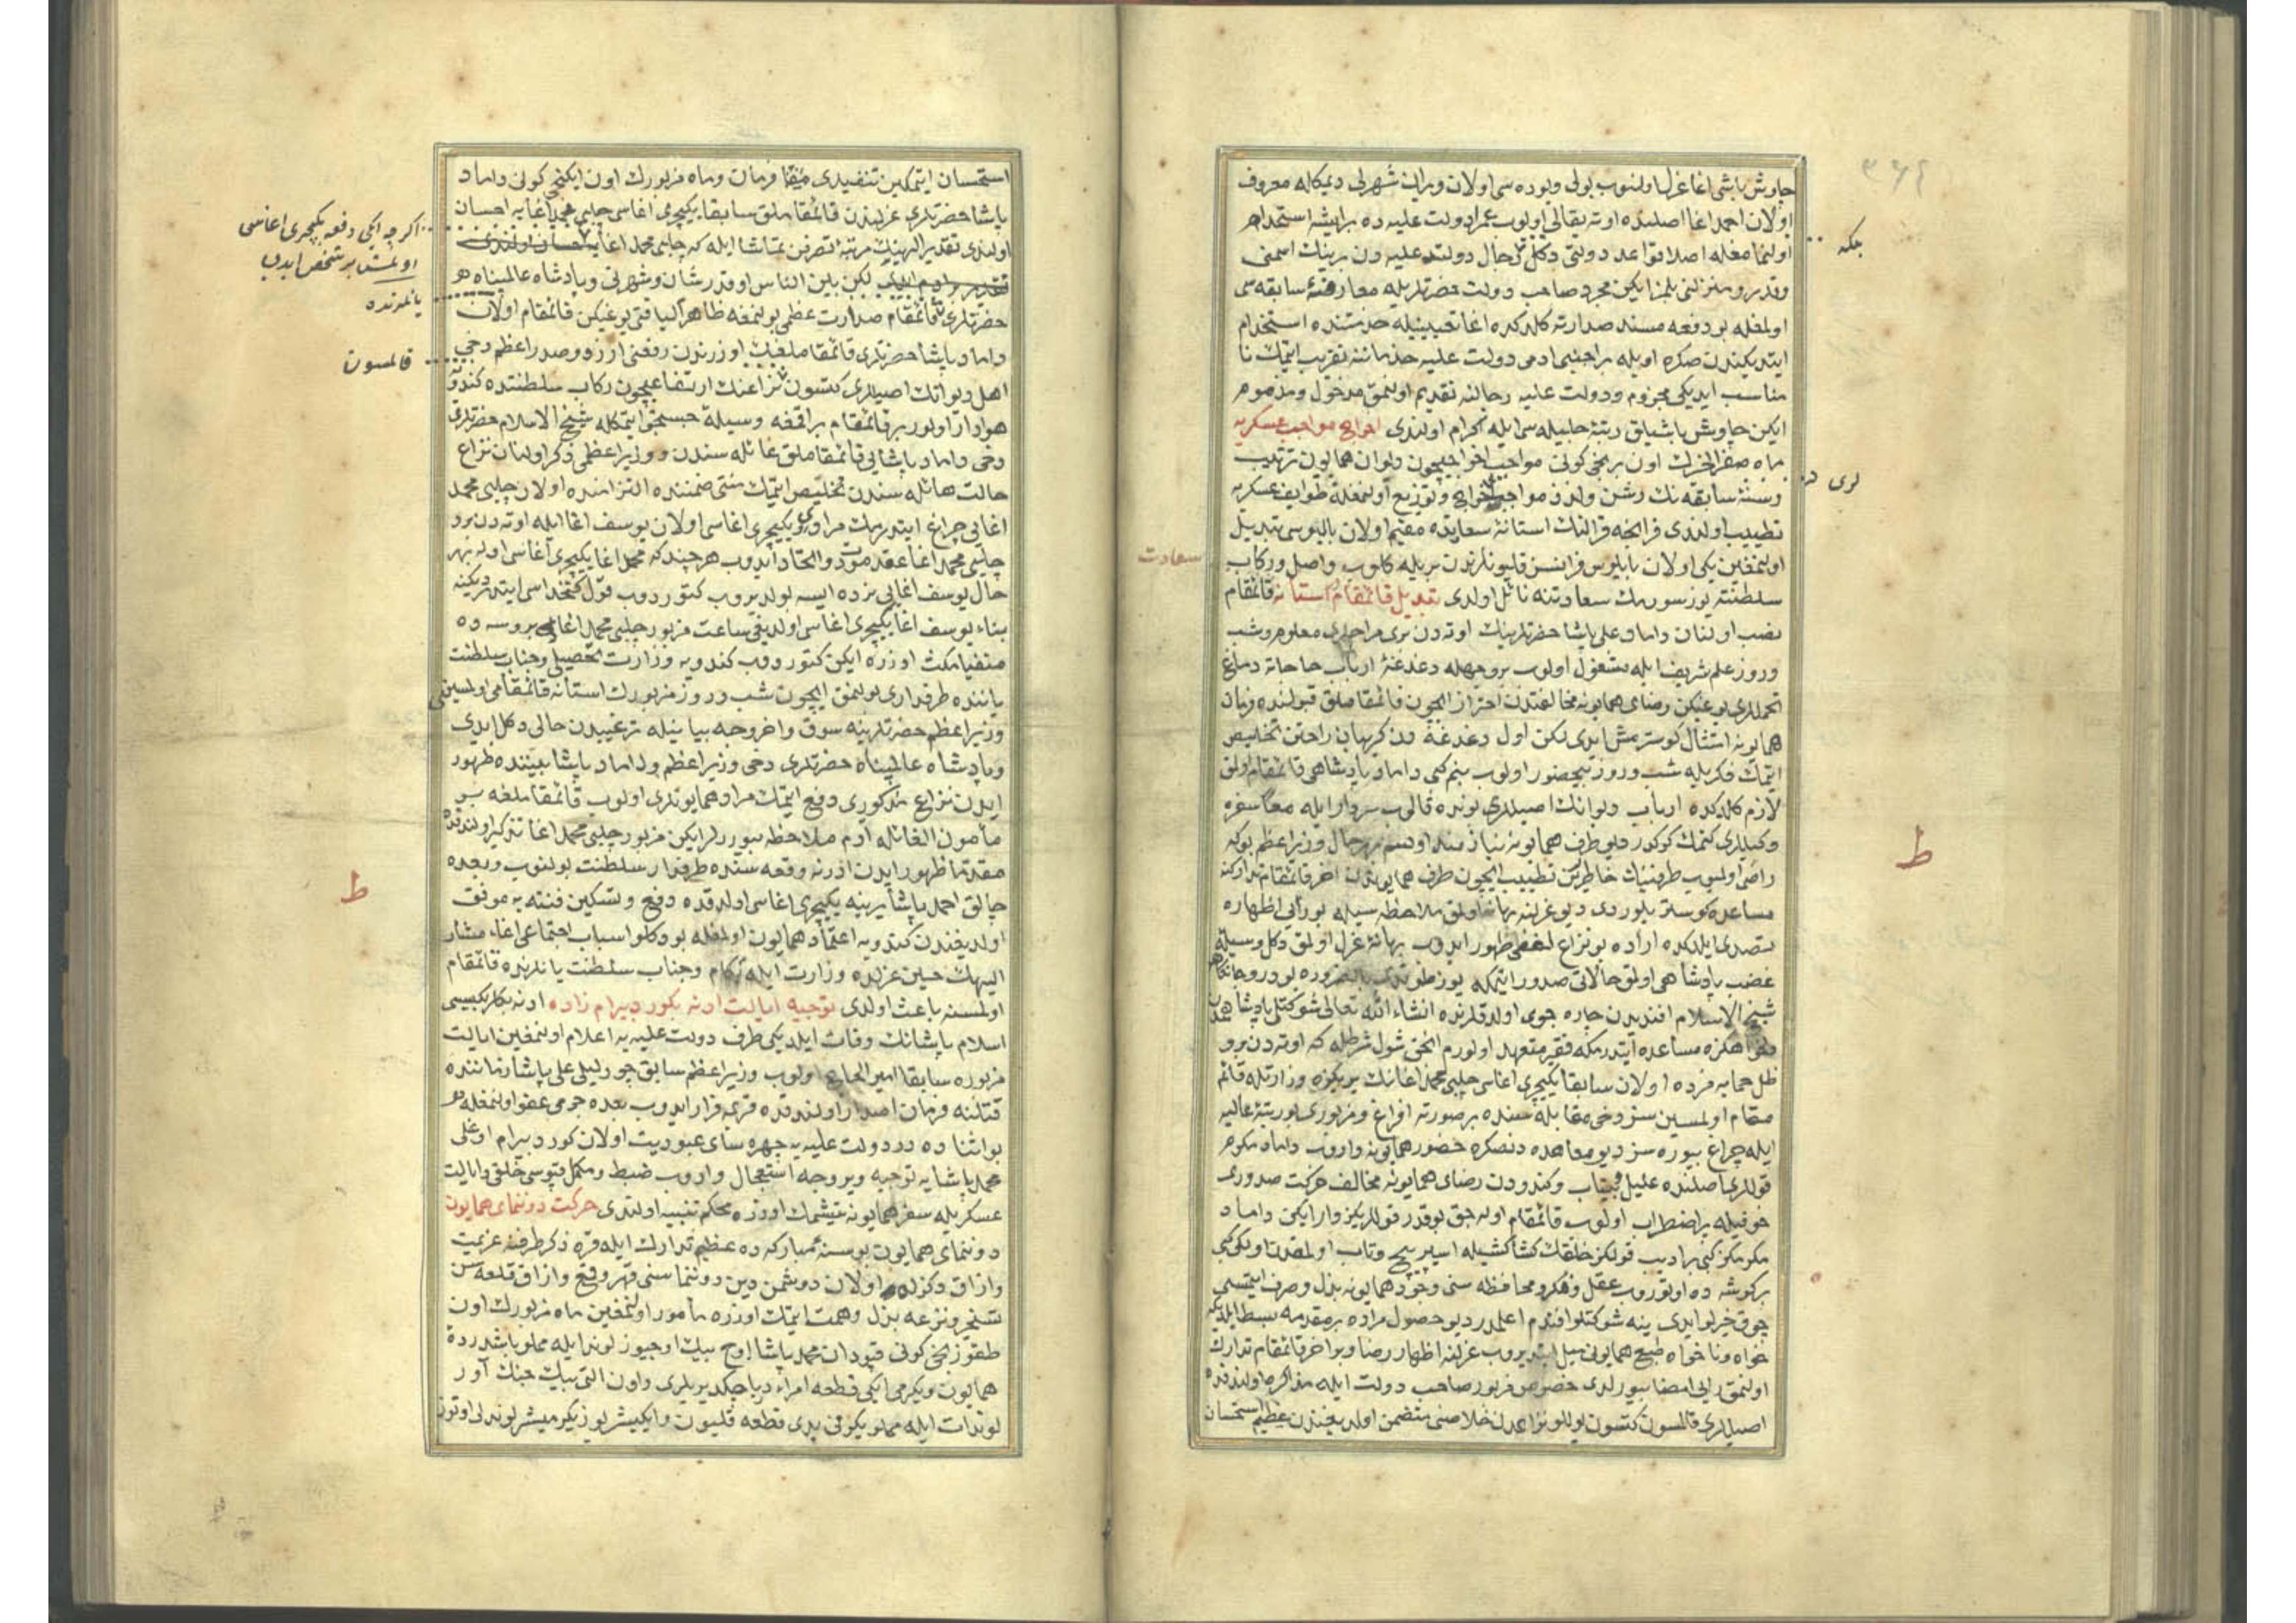 چاوش باشی اغا عزل اولنوب بولی ویوده سی اولان ویران شهرلی دیمكله معروف
اولان احمد اغا اصلنده اوته بقالی اولوب عمرا دولت علیه ده بر ایشه استخدام
اولنمامغله اصلا قواعد دولتی دكل رجال دولت علیه دن برینك اسمنی
وقدر ومنزلنی بلمز ایكن مجرد صاحب دولت حضرتلریله معارفۀ سابقه سی
اولمغله بو دفعه مسند صدارته كلدكده اغا تعیینیله خدمتنده استخدام
ایتدیكیندن صكره اویله بر اجنبی ادمی دولت علیه خدماتنه تقریب ایتمك نا
مناسب ایدیكی مجزوم ودولت علیه رجالنه تقدیم اولنمق مدخول ومذموم
ایكن چاوش باشیلق رتبۀ جلیله سی ایله اكرام اولندی اخراج مواجب عسكریه
ماه صفر الخیرك اون برنجی كونی مواجب اخراجیچون دیوان همایون ترتیب
وسنۀ سابقه نك رشن ولذذ مواجبلری اخراج وتوزیع اولنمغله طوایف عسكریه
تطییب اولندی فرانچه قرالنك استانۀ سعادتده مقیم اولان بالیوسی تبدیل
اولنمغین یكی اولان بالیوس فرانسز قلیونلرندن بریله كلوب واصل وركاب
سلطنته یوز سورمك سعادتنه نائل اولدی تبدیل قائمقام استانه قائمقام
نصب اولنان داماد علی پاشا حضرتلرینك اوته دن بری مزاجلری معلوم وشب
وروز علم شریف ایله مشغول اولوب بر وجهله دغدغۀ ارباب حاجاته دماغ
تحمللری یوغیكن رضای همایونه مخالفتدن احتراز ایچون قائمقاملق قبولنده فرمان
همایونه امتثال كوسترمش ایدی لكن اول دغدغه دن كریبان راحتن تخلیص
ایتمك فكریله شب وروز بیحضور اولوب بنم كبی داماد پادشاهی قائمقام اولمق
لازم كلدكده ارباب دیوانك اصیللری بونده قالوب سردار ایله معا سفره
وكیللری كتمك كركدر دیو طرف همایونه نیازمند اولسم بهر حال وزیر اعظم بوكه
راضی اولمیوب طرفینك خاطرین تطییب ایچون طرف همایوندن اخر قائمقام تداركنه
مساعده كوستریلوردی دیو عزلنه بهانه اولمق ملاحظه سیله بو رأیی اظهاره
تصدی ایلدكده اراده بو نزاع لفظی ظهور ایدوب بهانۀ عزل اولمق دكل وسیلۀ
غضب پادشاهی اولمق حالاتی صدور ایتمكه یوز طوتدی
شیخ الاسلام افندیدن چاره جوی اولدقلرنده انشاء الله تعالی شوكتلو پادشاهمدن
مساعده ایتدرمكه فقیر متعهد اولورم انجق شول شرطله كه اوته دن برو
ظل حمایه مزده اولان سابقا یكیچری اغاسی چلبی محمد اغانك یریكزه وزارتله قائم
مقام اولمسین سز دخی مقابله سنده بر صورته افراغ ومزبوری بو رتبۀ عالیه
ایله چراغ بیوره سز دیو معاهده دنصكره حضور همایونه واروب داماد مكرم
قوللری اصلنده علیل وبیتاب وكندودن رضای همایونه مخالف حركت صدوری
خوفیله پر اضطراب اولوب قائمقام اوله جق بو قدر قوللریكز وار ایكن داماد
مكرمكز كبی بر ادیب قولكز خلقك كشاكشیله اسیر پیچ وتاب اولمقدن اولكی كبی
بر كوشه ده اوتوروب عقل وفكر ومحافظه سنی وجود همایونه بذل وصرف ایتمسی
چوق خیرلو ایدی ینه شوكتلو افندم اعلمدر دیو حصول مراده بر مقدمه بسط ایلدیكه
خواه وناخواه طبع همایونی میل ایتدیروب عزلنه اظهار رضا وبو اخر قائمقام تدارك
اولنمق رأیی امضا بیورلدی خصوص مزبور صاحب دولت ایله مذاكره اولندقده
اصیللری قالمسون كتسون نزاعدن خلاصنی متضمن اولدیغیندن عظیم استحسان
بلكه
لری
سعادت
ط
استحسان ایتمكین تنفیذی متفقا فرمان وماه مزبورك اون ایكنجی كونی داماد
پاشا حضرتلری عزلیندن قائمقاملق سابقا یكیچری اغاسی چلبی محمد اغایه احسان
اولندی تقدیر الهینك مرتبۀ تصرفن تماشا ایله كه چلبی محمد اغایه احسان اولندی
لكن بین الناس او قدر شان وشهرتی وپادشاه عالمپناه
حضرتلری قائمقام صدارت عظمی بولنمغه ظاهرا لیاقتی یوغیكن قائمقام اولان
داماد پاشا حضرتلری قائمقاملغك اوزرندن رفعنی ارزو وصدر اعظم دخی
اهل دیوانك اصیللری كتسون نزاعنك ارتفاعیچون ركاب سلطنتده كندویه
هوادار اولور بر قائمقام براقمغه وسیله جستجوی ایتمكله شیخ الاسلام حضرتلری
دخی داماد پاشایی قائمقاملق غائله سندن ووزیر اعظمی ذكر اولنان نزاع
حالت هائله سندن تخلیص ایتمك منتی ضمننده التزامنده اولان چلبی محمد
اغایی چراغ ایتدرمك مراد ویكیچری اغاسی اولان یوسف اغا ایله اوته دن برو
چلبی محمد اغا عقد مودت واتحاد ایدوب هر چند كه محمد اغا یكیچری اغاسی اوله بهر
حال یوسف اغایی نرده ایسه بولدیروب كتوردوب قول كتخداسی ایتدردیكنه
بناء یوسف اغا یكیچری اغاسی اولدیغی ساعت مزبور چلبی محمد اغایی بروسه ده
منفیا مكث اوزره ایكن كتوردوب كندویه وزارت تحصیلی وجناب سلطنت
یاننده طرفداری بولنمق ایچون شب وروز مزبورك استانه قائمقامی اولمسینی
وزیر اعظم حضرتلرینه سوق واخر وجه بیانیله ترغیبدن خالی دكل ایدی
وپادشاه عالمپناه حضرتلری دخی وزیر اعظم وداماد پاشا بیننده ظهور
ایدن نزاع مذكوری دفع ایتمك مراد همایونلری اولوب قائمقاملغه بر
مأمون الغائله ادم ملاحظه بیوررلر ایكن مزبور چلبی محمد اغا تذكیر اولندقده
مقدما ظهور ایدن ادرنه وقعه سنده طرفدار سلطنت بولنوب وبعده
چالق احمد پاشا یرینه یكیچری اغاسی اولدقده دفع وتسكین فتنه یه موفق
اولدیغندن كندویه اعتماد همایون اولمغله بو دكلو اسباب اجتماعی اغاء مشار
الیهك حین عزلده وزارت ایله بكام وجناب سلطنت یانلرنده قائمقام
اولمسنه باعث اولدی توجیه ایالت ادنه بكور دبیرام زاده ادنه بكلربكیسی
اسلام پاشانك وفات ایلدیكی طرف دولت علیه یه اعلام اولنمغین ایالت
مزبوره سابقا امیر الحاج اولوب وزیر اعظم سابق چورلیلی علی پاشا زماننده
قتلنه فرمان اصدار اولندقده قریمه فرار ایدوب بعده جرمی عفو اولنمغله
بو اثنا ده در دولت علیه یه چهره سای عبودیت اولان كورد بیرام اوغلی
محمد پاشایه توجیه وبر وجه استعجال واروب ضبط ومكمل قپوسی خلقی وایالت
عسكریله سفر همایونه یتیشمك اوزره محكم تنبیه اولندی حركت دوننمای همایون
دوننمای همایون بو سنۀ مباركه ده عظیم تدارك ایله قره دكز طرفنه عزیمت
وازاق دكزنده اولان دوشمن دین دوننماسنی قهر وقمع وازاق قلعه سن
تسخیر ونزعه بذل وهمت ایتمك اوزره مأمور اولنمغین ماه مزبورك اون
طقوزنجی كونی قپودان محمد پاشا اوچ بیك اوچیوز لوند ایله مملو باشدردۀ
همایون ویكرمی ایكی قطعه امراء دریا چكدیریلری واون التی بیك جنك آور
لوندات ایله مملو یكرمی یدی قطعه قلیون وایكیشر یوز یكرمیشر لوندلی اوتوز
اكرچه ایكی دفعه یكیچری اغاسی
اولمش بر شخص ایدی
یانلرنده
قالمسون
ط